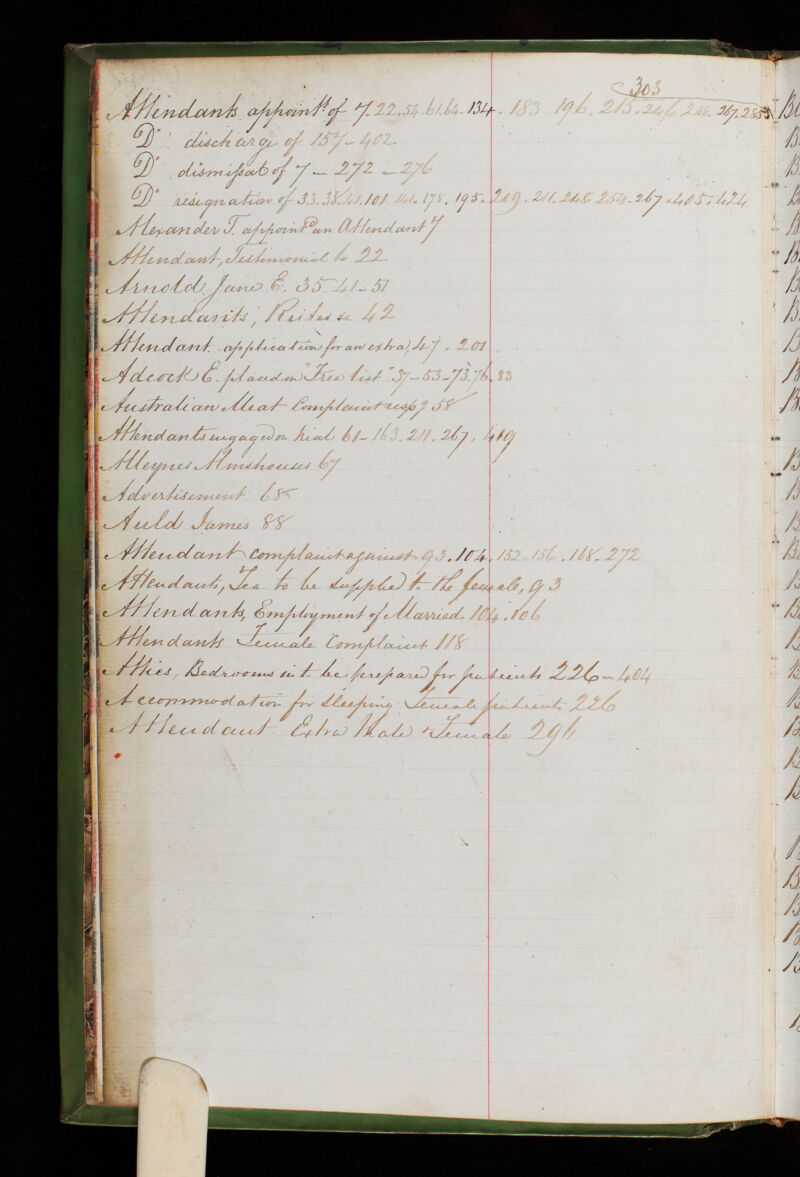 303
Attendants appoint.t of 7.22.54.61.64.134.183.196.215.246.248.267.285
D.o discharge of 157-402
D.o dismissal of 7-272-276
D.o resignation of 33.38.41.101.141.178.195.209.211.248.254.267.405.424
Alexander T. appoint.d an Attendant 7
Attendant, Testimonial to 22
Arnold Jane E. 35 41-51
Attendants, 42
Attendant application for an extra, 47.201
Adcock E. placed on "Free list" 37-53-73.76.83
Australian Meat Complaint resp.g 58
Attendants engaged on trial 61-163.211.267.419
Alleynes Almshouses 67
Advertisement 68
Auld James 88
Attendant complaint against 93.104.152.156.168.272
Attendants, Tea to be supplied to the female, 93
Attendants, Employment of Married 104.106
Attendants Female Complaint 118
Attics, Bedrooms in to be prepared for patients 226-404
Accommodation for Sleeping Female patients 226
Attendant Extra Male & Female 296